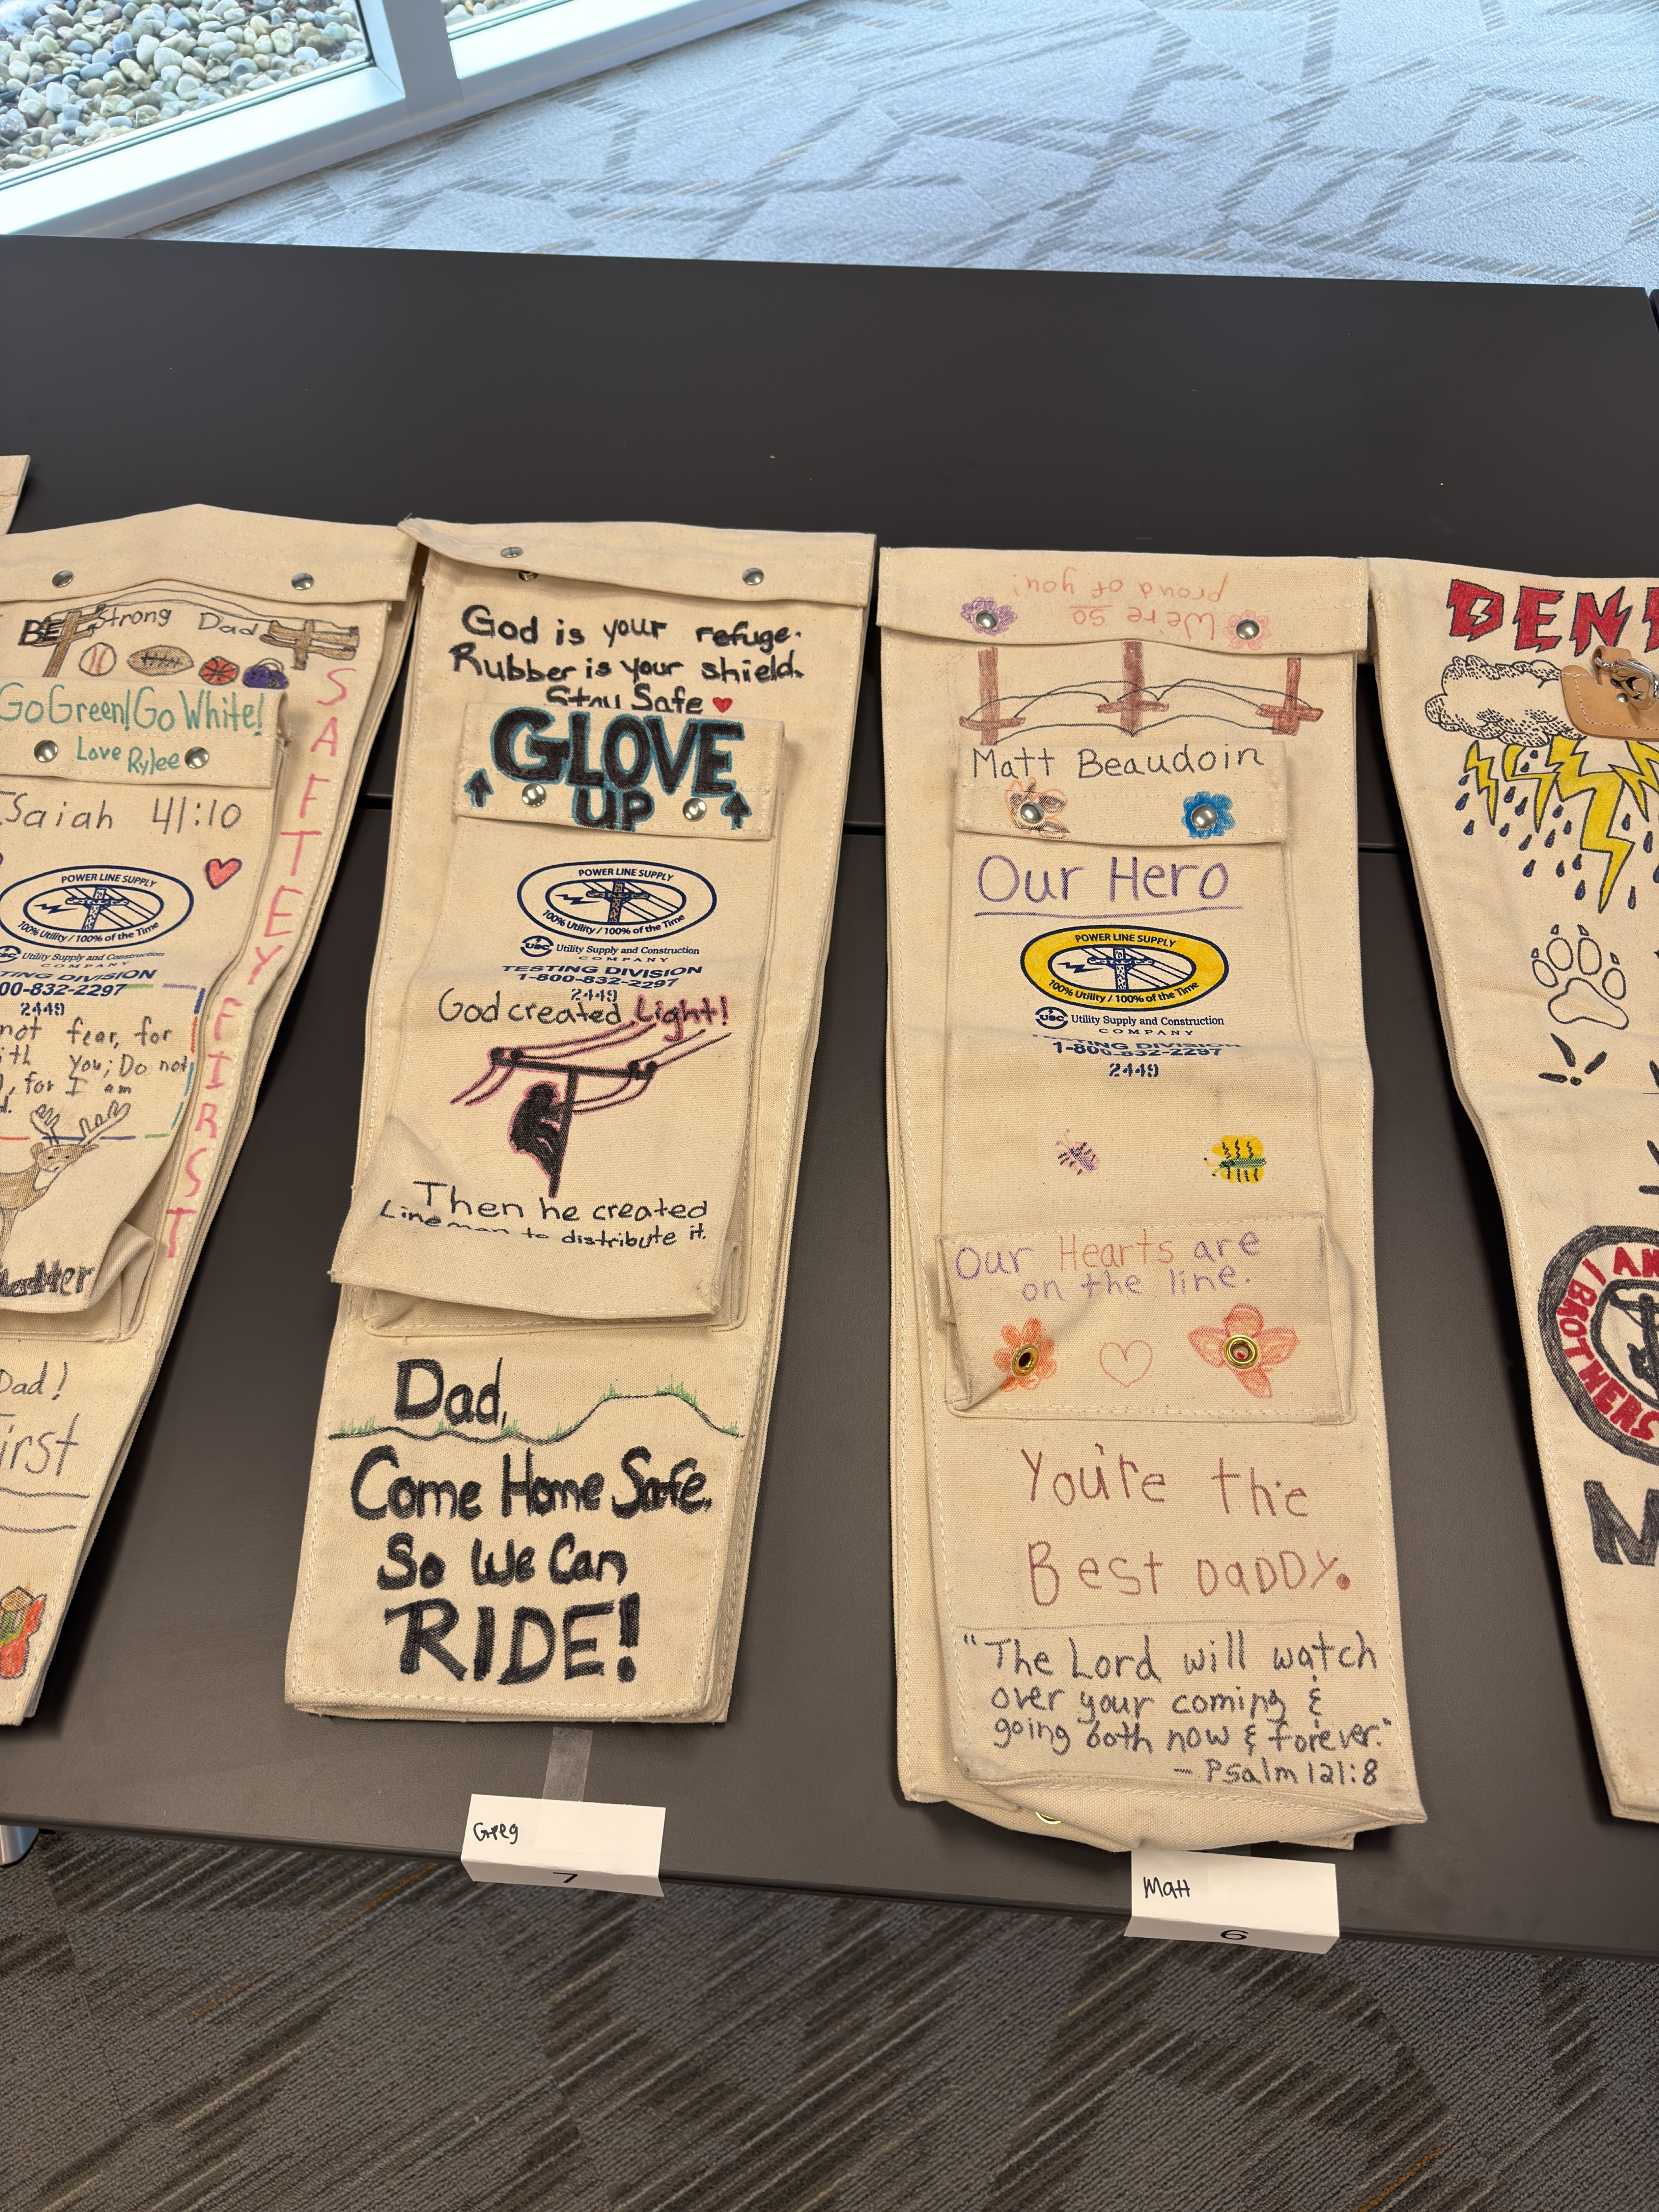 BE Strong Dad
Go Green! Go White!
Love Rylee
Isaiah 41:10
POWER LINE SUPPLY
100% Utility / 100% of the Time
Utility Supply and Construction
COMPANY
TING DIVISION
00-832-2297
2449
not fear, for
ith you; Do not
, for I am
d.
SAFTEY FIRST
Dad!
irst
God is your refuge.
Rubber is your shield.
Stay Safe
GLOVE
UP
POWER LINE SUPPLY
100% Utility / 100% of the Time
USC Utility Supply and Construction
COMPANY
TESTING DIVISION
1-800-832-2297
2449
God created Light!
Then he created
Lineman to distribute it.
Dad,
Come Home Safe,
So We Can
RIDE!
Greg
7
We're so
proud of you!
Matt Beaudoin
Our Hero
POWER LINE SUPPLY
100% Utility / 100% of the Time
USC Utility Supply and Construction
COMPANY
TESTING DIVISION
1-800-832-2297
2449
Our Hearts are
on the line.
You're the
Best DaDDy.
"The Lord will watch
over your coming &
going both now & forever."
- Psalm 121:8
Matt
6
DEN
I AM
BROTHERS
M